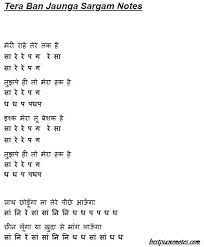 Tera Ban Jaunga Sargam Notes
मेरी राहें तेरे तक है
सा रे रे प ग रे सा
सा रे रे प ग
तुझपे ही तो मेरा हक है
सा रे रे प ग
ध ध प पधप
इश्क मेरा तू बेशक है
सा रे रे प ग रे सा
सा रे रे प ग
तुझपे ही तो मेरा हक है
सा रे रे प ग
ध ध प पधप
साथ छोड़ूंगा ना तेरे पीछे आऊँगा
सां नि रें सां सां नि नि ध ध प प ध ध
छीन लूँगा या खुदा से मांग लाऊँगा
सां नि रें सां सां नि नि ध ध सां सां ध ध
bestpianonotes.com